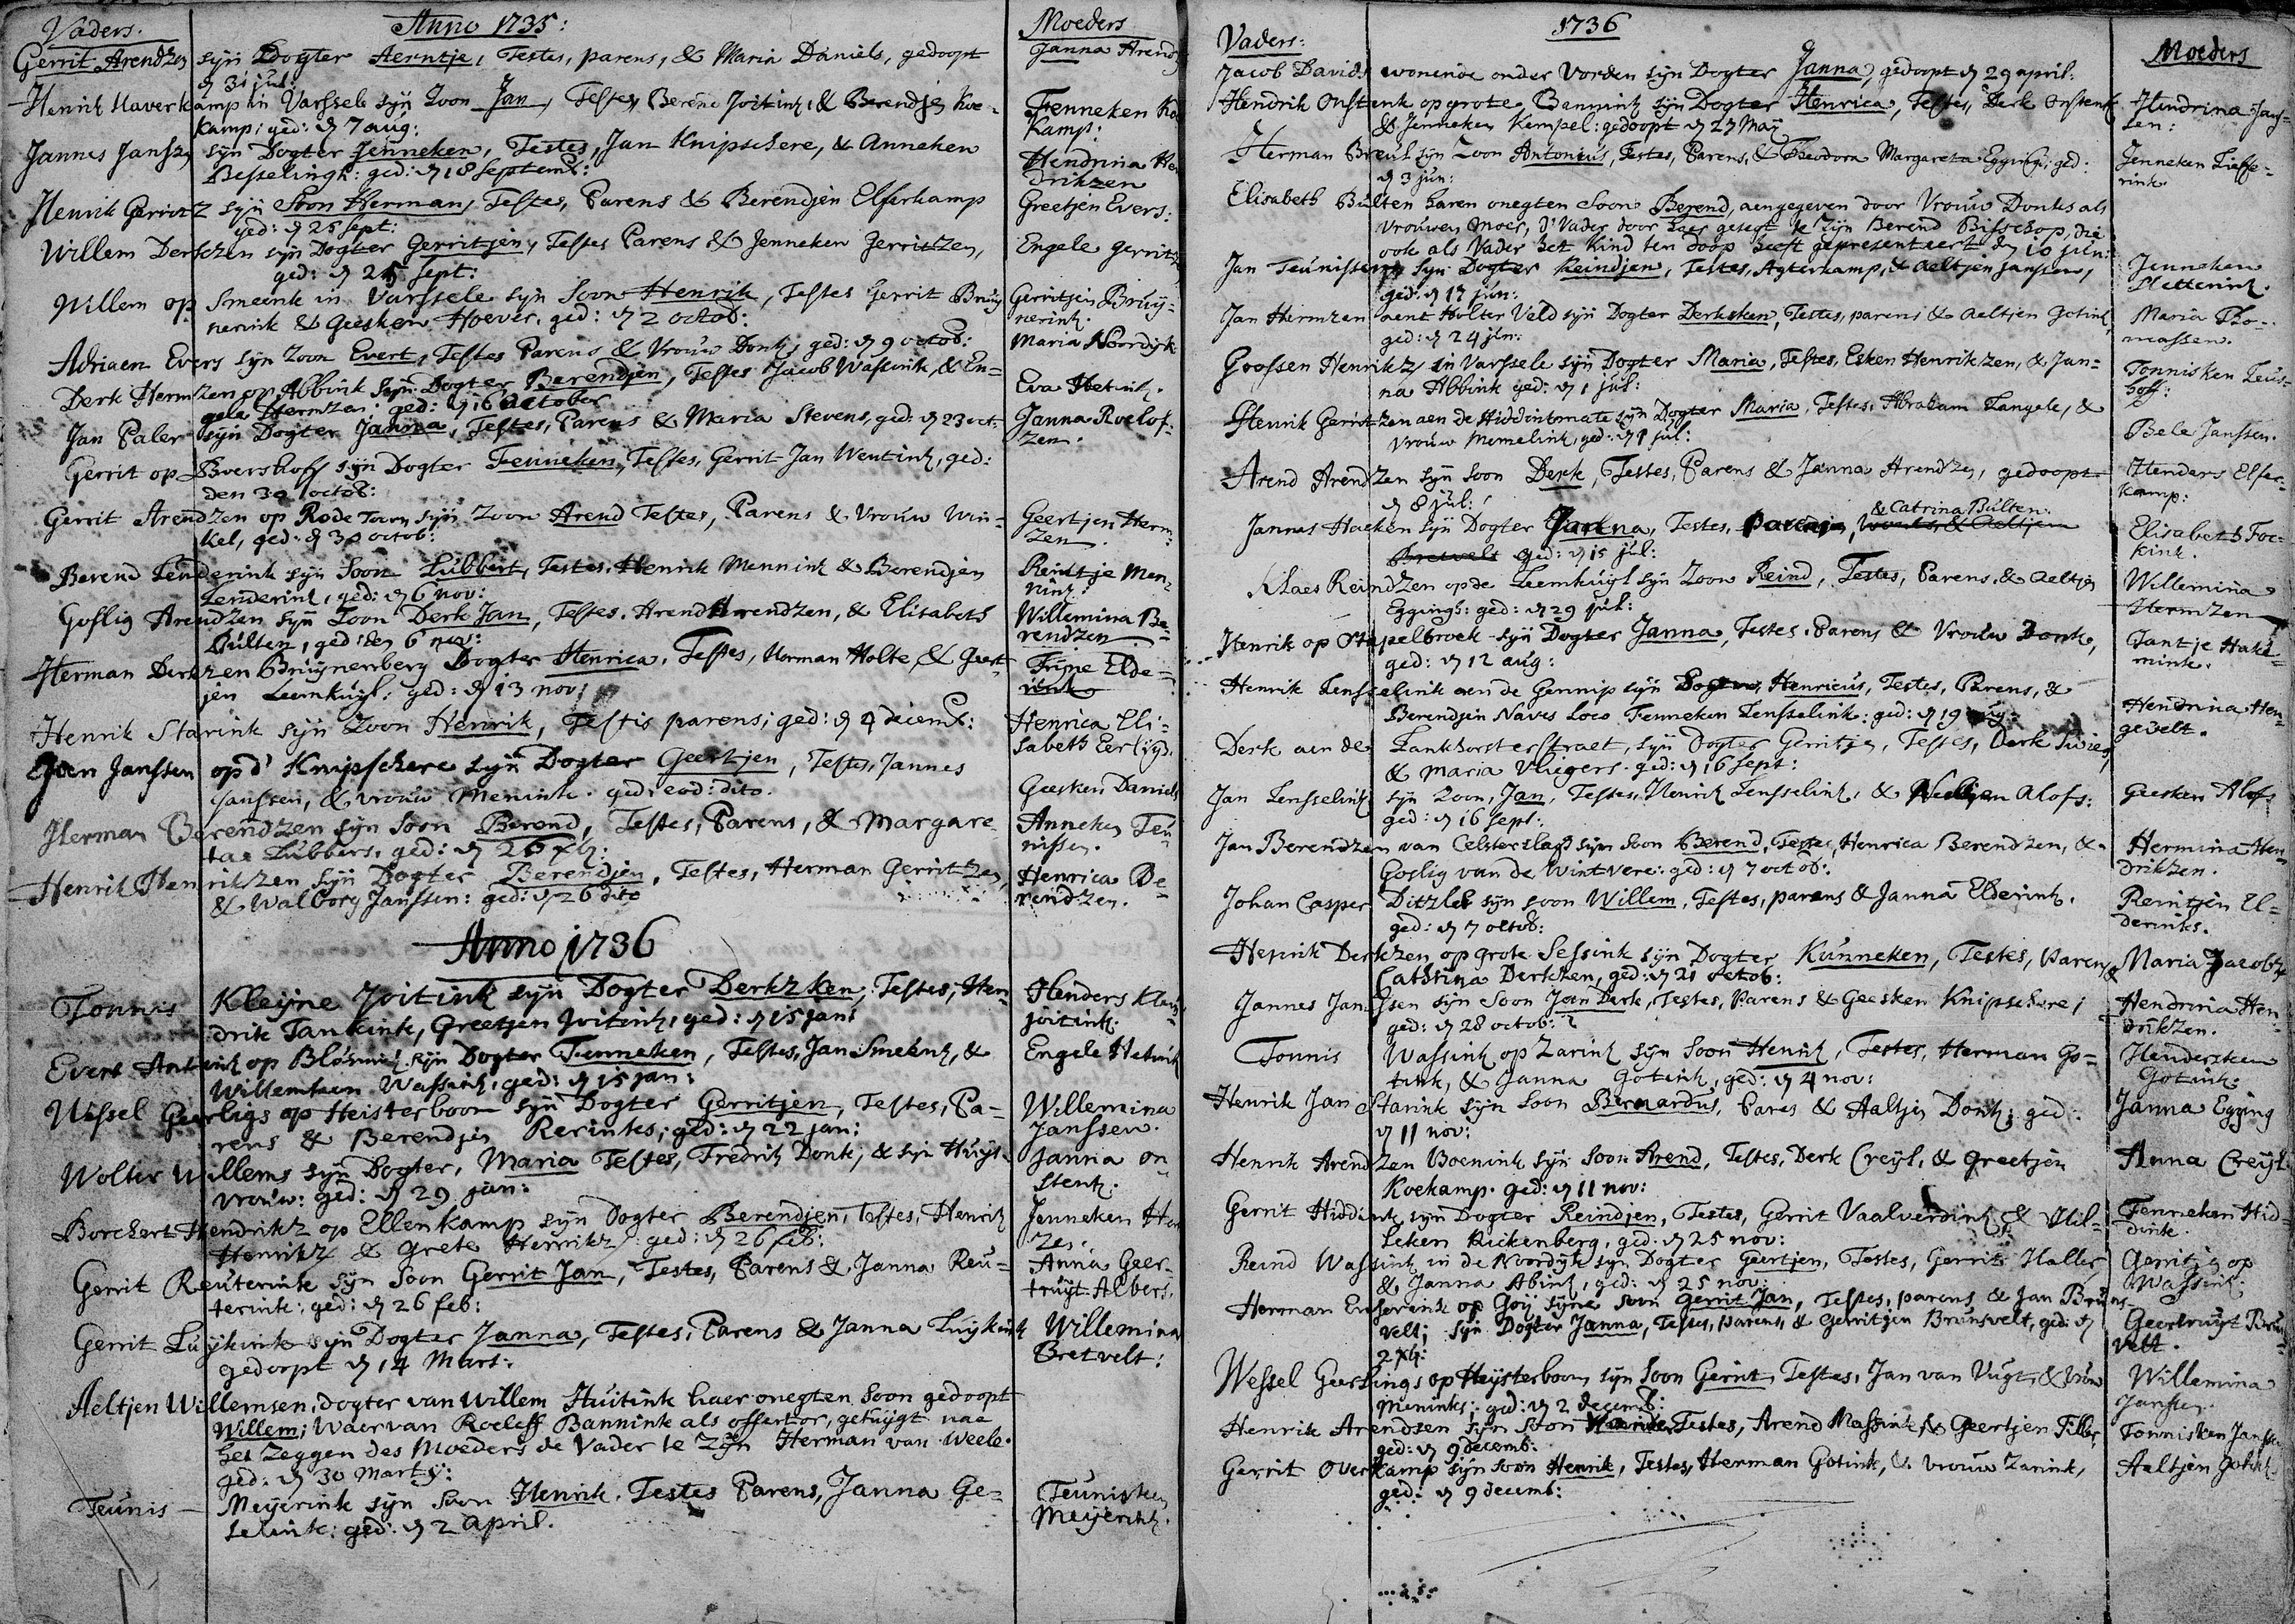 Vaders. Anno 1735: Moeders
Gerrit Arendzen syn Dogter Aerntje, Testes, parens, & Maria Daniels, gedoopt Janna Arendz
d 31 jul:
Henrik Haverkamp in Varssele syn Zoon Jan, Testes, Berend Joitink, & Berendjen Koe- Fenneken Ko
kamp: ged: d 7 aug: kamp:
Jannes Jansz syn Dogter Jenneken, Testes, Jan Knipschere, & Anneken Hendrina Hen
Besselingh: ged: d 18 Septemb: drikzen
Henrik Gerritz syn Soon Herman, Testes, Parens & Berendjen Elferkamp Greetjen Evers:
ged: d 25 sept:
Willem Derkzen syn Dogter Gerritjen, Testes Parens & Jenneken Gerritzen, Engele Gerritz
ged: d 25 sept:
Willem op Smeenk in Varssele syn Soon Henrik, Testes Gerrit Bruy Gerritjen Bruy-
nerink & Geesken Hoever, ged: d 2 octob: nerink.
Adriaen Evers syn Zoon Evert, Testes Parens & Vrouw Donk, ged: d 9 octob: Maria Noordyk
Derk Hermzen op Abbink syn Dogter Berendjen, Testes Jacob Wassink, & En- Eva Hetink.
gele Hermzen, ged: d 16 october
Jan Paler syn Dogter Janna, Testes, Parens & Maria Stevens, ged: d 23 oct: Janna Roelof-
zen.
Gerrit op Boershoff syn Dogter Fenneken, Testes, Gerrit Jan Wentink, ged:
den 30 octob:
Gerrit Arendzen op Rode Toorn syn Zoon Arend Testes, Parens & Vrouw Win- Geertjen Herm-
kel, ged: d 30 octob: zen.
Berend Lenderink syn Soon Lubbert, Testes, Henrik Mennink & Berendjen Reintje Men-
Lenderink, ged: d 6 nov: nink.
Goslig Arendzen syn Zoon Derk Jan, Testes. Arend Arendzen, & Elisabeth Willemina Be-
Bulten, ged: den 6 nov: rendzen
Herman Derkzen Bruynenberg Dogter Henrica, Testes, Herman Holte, & Geert- Trijne Elde-
jen Leemkuyl: ged: d 13 nov: rink
Henrik Starink syn Zoon Henrik, Testis parens; ged: d 4 decemb: Henrica Eli-
sabeth Eerligh.
Even Janssen op d' Knipschere syn Dogter Geertjen, Testes, Jannes
Janssen, & vrouw Menink. ged: eod: dito. Geesken Daniels
Herman Berendzen syn Soon Berend, Testes, Parens, & Margare- Anneken Teu
tae Lubbers, ged: d 26 xb: nissen.
Henrik Henrikzen syn Dogter Berendjen, Testes, Herman Gerritzen, Henrica Be-
& Walborg Janssen: ged: d 26 dito rendzen.
Anno 1736
Tonnis Kleyne Joitink syn Dogter Derkzken, Testes, Hen- Henders Kleyn
drik Tankink, Greetjen Joitink, ged: d 15 jan: joitink.
Evert Antink op Blomink syn Dogter Fenneken, Testes, Jan Smeenk, & Engele Hetink
Willemken Wassink, ged: d 15 jan:
Wessel Geerligs op Heisterboom syn Dogter Gerritjen, Testes, Pa- Willemina
rens & Berendjen Rerinks; ged: d 22 jan: Janssen.
Wolter Willems syn Dogter, Maria Testes, Fredrik Donk, & syn Huys- Janna On
vrouw: ged: d 29 jan: stenk.
Borchert Hendrikz op Ellenkamp syn Dogter Berendjen, Testes, Henrik Jenneken Hen
Henrikz & Grete Henrikz: ged: d 26 feb: zen.
Gerrit Reuterink syn Soon Gerrit Jan, Testes, Parens & Janna Reu- Anna Geer-
terink: ged: d 26 feb: truyt Albers.
Gerrit Luykink syn Dogter Janna, Testes, Parens & Janna Luykink Willemina
gedoopt d 14 Mart: Bretvelt:
Aeltjen Willemsen, dogter van Willem Huitink haer onegten Soon gedoopt
Willem; Waervan Roeleff Bannink als offertor, getuygt nae
het zeggen des Moeders de Vader te Zyn Herman van Weele.
ged: d 30 Marty:
Teunis Meyerink syn Soon Henrik. Testes Parens, Janna Ge- Teunisken
selink: ged: d 2 April. Meyerink.
Vaders: 1736 Moeders
Jacob Davids wonende onder Vorden syn Dogter Janna, gedoopt d 29 april:
Hendrik Onstenk op grote Bannink syn Dogter Henrica, Testes, Derk Onstenk Hendrina Jans-
& Jenneken Kempel: gedoopt d 27 May sen:
Herman Breuk syn Zoon Antonius, Testes, Parens, & Theodora Margareta Egging: ged: Jenneken Lieffe-
d 3 jun: rink
Elisabeth Bulten haren onegten Soon Berend, aengegeven door Vrouw Donks als
vrouwen moer, d' Vader door haer gesegt te zyn Berend Bisschop, die
ook als Vader het Kind ten doop heeft gepresenteert den 10 jun:
Jan Teunissen syn Dogter Reindjen, Testes, Agterkamp, & Aeltjen Janssen, Jenneken
ged: d 17 jun: Hettering.
Jan Hermzen aent Holter Veld syn Dogter Derksken, Testes, parens & Aeltjen Gotink, Maria Tho-
ged: d 24 jun: massen.
Grossen Henrikz in Varssele syn Dogter Maria, Testes, Esken Henrikzen, & Jan- Tonnisken Leus-
na Abbink ged: d 1 jul: hoff:
Henrik Gerritzen aen de Hiddinkmate syn Dogter Maria, Testes, Abraham Langele, &
vrouw Memelink, ged: d 1 jul: Bele Janssen.
Arend Arendzen syn soon Derk, Testes, Parens & Janna Arendzen, gedoopt Henders Elfer-
d 8 jul: kamp:
& Catrina Bulten.
Jannes Haeken syn Dogter Janna, Testes, parens, Elisabeth Foc-
ged: d 15 jul: kink.
Klaes Reindzen op de Leemkuyl syn Zoon Reind, Testes, Parens, & Aeltjen Willemina
Eggingh: ged: d 29 jul: Hermzen
Henrik op Stapelbroek syn Dogter Janna, Testes. Parens & Vrouw Donk, Jantje Hake-
ged: d 12 aug: mink.
Henrik Lensselink aen de Gennip syn Henricus, Testes, Parens, &
Berendjen Naves loco Fenneken Lensselink: ged: d 19 aug: Hendrina Hen-
gevelt.
Derk aen de Lankhorsterstraet, syn Dogter Gerritje, Testes, Derk Swies,
& Maria Vliegers. ged: d 16 sept:
Jan Lensselink syn Zoon, Jan, Testes, Henrik Lensselink, & Alofs: Geesken Alofs
ged: d 16 sept:
Jan Berendzen van Celsterslagh syn Soon Berend, Testes, Henrica Berendzen, & Hermina Hen-
Goslig van de Wintvere: ged: d 7 octob: drikzen.
Johan Casper Ditzler syn soon Willem, Testes, parens & Janna Elderink. Reintjen El-
ged: d 7 octob: derinks.
Henrik Derkzen op grote Sessink syn Dogter Kunneken, Testes, Parens & Maria Jacobs
Cathrina Derkzen, ged: d 21 octob:
Jannes Janssen syn Soon Jan Derk, Testes, Parens & Geesken Knipschere; Hendrina Hen-
ged: d 28 octob: drikzen.
Tonnis Wassink op Zarink syn Soon Henrik, Testes, Herman Go- Hendersken
tink, & Janna Gotink, ged: d 4 nov: Gotink.
Henrik Jan Starink syn Soon Bernardus, Pares & Aaltjen Donk; ged: Janna Egging
d 11 nov:
Henrik Arendzen Boenink syn Soon Arend, Testes, Derk Creyl, & Greetjen Anna Creyl
Koekamp. ged: d 11 nov:
Gerrit Hiddink syn Dogter Reindjen, Testes, Gerrit Vaalverdink & Hil- Fenneken Hid-
leken Rickenberg, ged: d 25 nov: dink.
Reind Wassink in de Noordyk syn Dogter Geertjen, Testes, Gerrit Haller Gerritjen op
& Janna Abink, ged: d 25 nov: Wassink.
Herman Enserink op Goy syne Soon Gerrit Jan, Testes, parens & Jan Bruns-
velt; syn Dogter Janna, Testes, parens, & Gerritjen Brunsvelt, ged: d Geertruyt Bruns
2 xb: velt.
Wessel Geerlings op Heysterboom syn Soon Gerrit, Testes, Jan van Vugt, & Vrouw Willemina
Meninks: ged: d 2 decemb: Janssen.
Henrik Arendsen syn Soon Testes, Arend Massink & Geertjen Filler, Tonnisken Janssen
ged: d 9 decemb:
Gerrit Overkamp syn Soon Henrik, Testes, Herman Gotink, & vrouw Zarink, Aaltjen Gotink
ged: d 9 decemb: